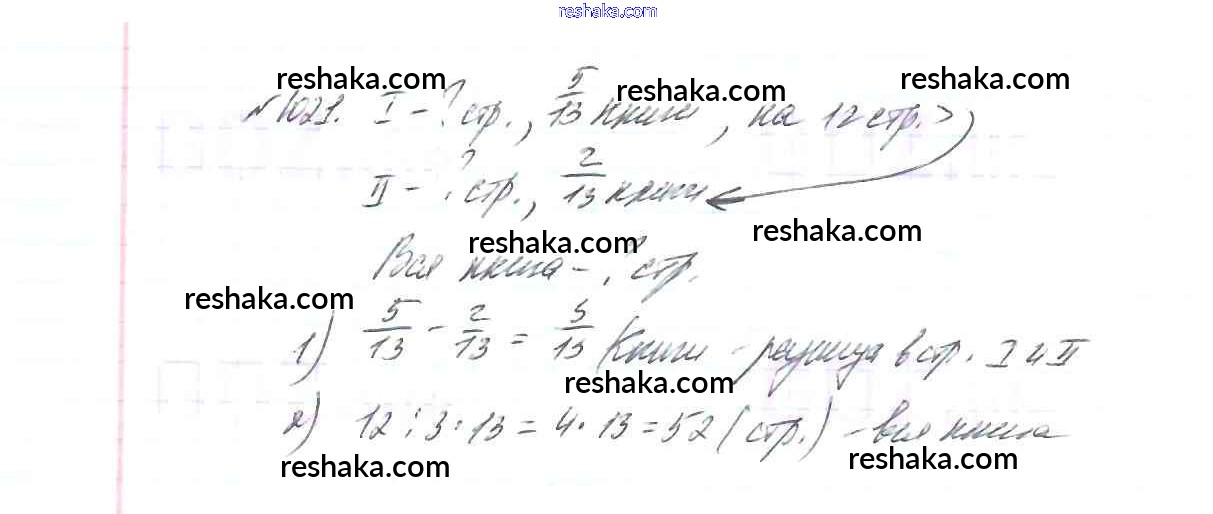 reshaka.com
reshaka.com reshaka.com reshaka.com
№1021. I - ? стр., 5/13 книги, на 12 стр. >
II - ? стр., 2/13 книги
reshaka.com reshaka.com
Вся книга - ? стр.
reshaka.com
1) 5/13 - 2/13 = 3/13 (книги) - разница в стр. I и II
reshaka.com
2) 12 : 3 · 13 = 4 · 13 = 52 (стр.) - вся книга
reshaka.com reshaka.com